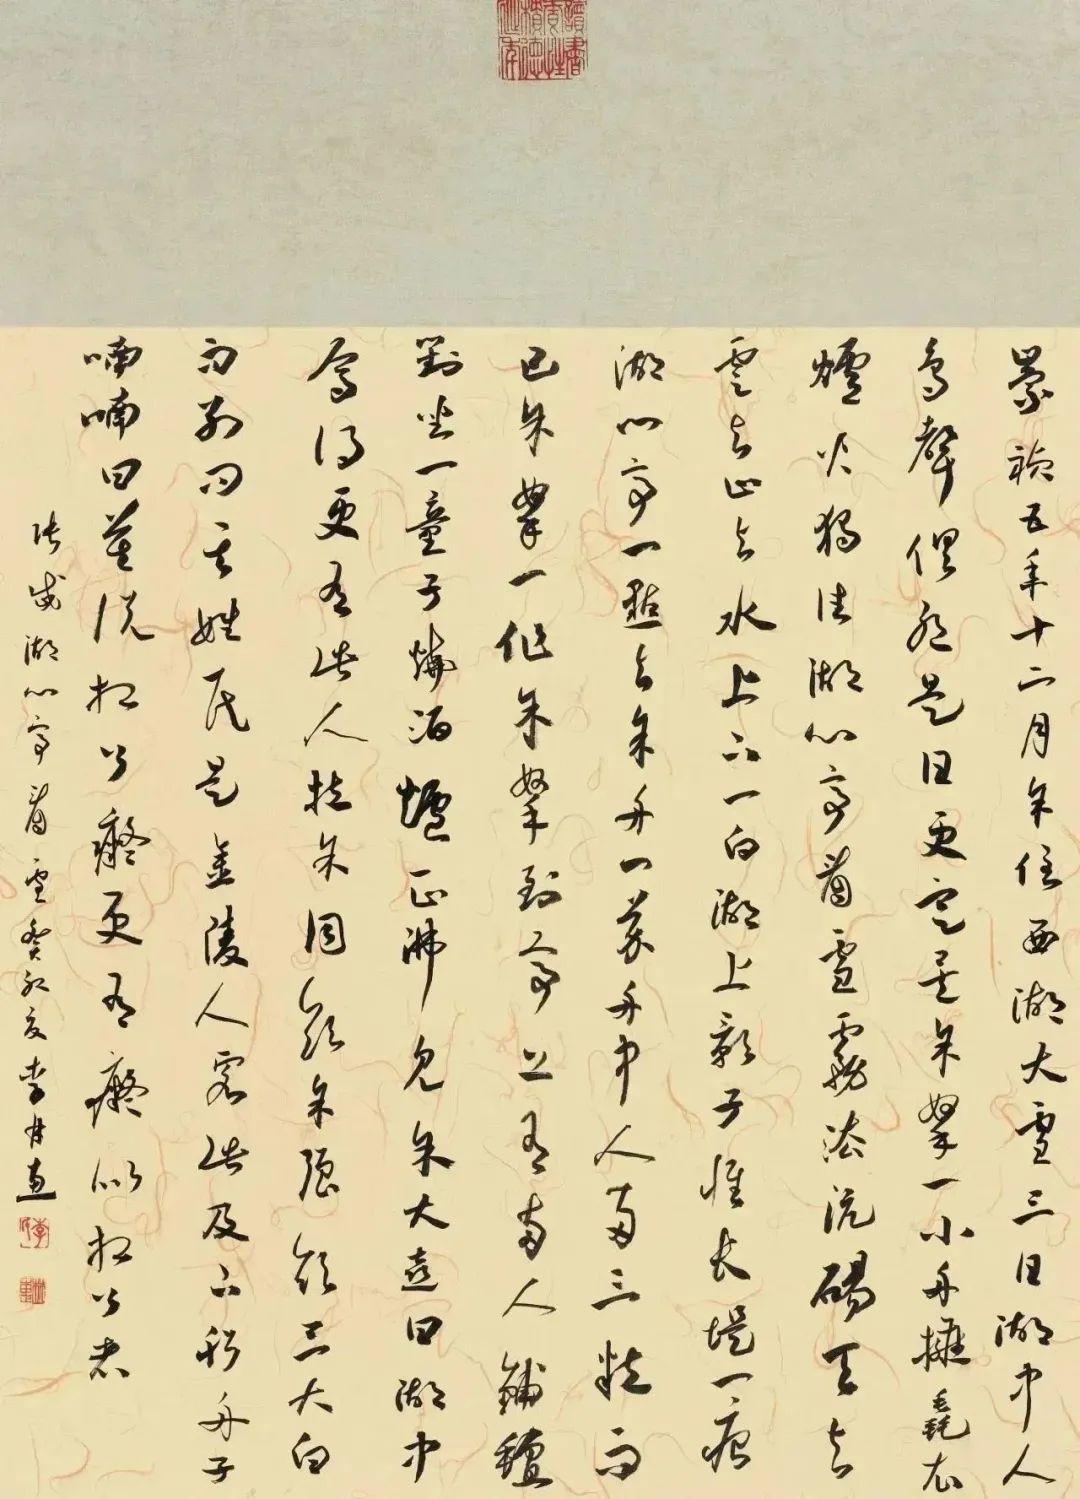 崇禎五年十二月余住西湖大雪三日湖中人
鳥聲俱絕是日更定矣余拏一小舟擁毳衣
爐火獨往湖心亭看雪霧淞沆碭天与
雲与山与水上下一白湖上影子惟長堤一痕
湖心亭一點与余舟一芥舟中人兩三粒而
已余拏一作余挐到亭上有兩人鋪氈
對坐一童子燒酒爐正沸見余大喜曰湖中
焉得更有此人拉余同飲余強飲三大白
而別問其姓氏是金陵人客此及下船舟子
喃喃曰莫說相公癡更有癡似相公者
張岱湖心亭看雪癸卯夏李